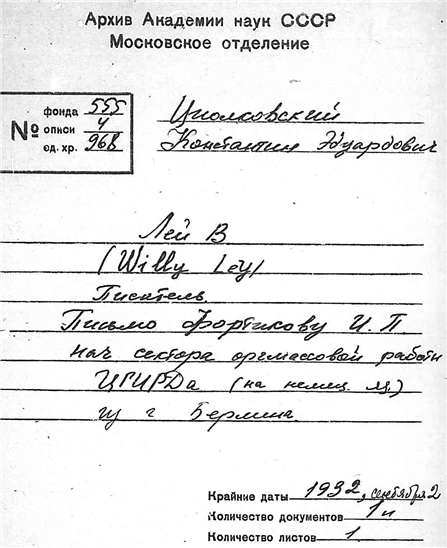 Архив Академии наук СССР
Московское отделение
№
фонда 555
описи 4
ед. хр. 968
Циолковский
Константин Эдуардович
Лей В
(Willy Ley)
Писатель.
Письмо Фортикову И. П
нач сектора оргмассовой работы
ЦГИРДа (на немец. яз)
из г Берлина.
Крайние даты 1932, сентября 2
Количество документов 1
Количество листов 1